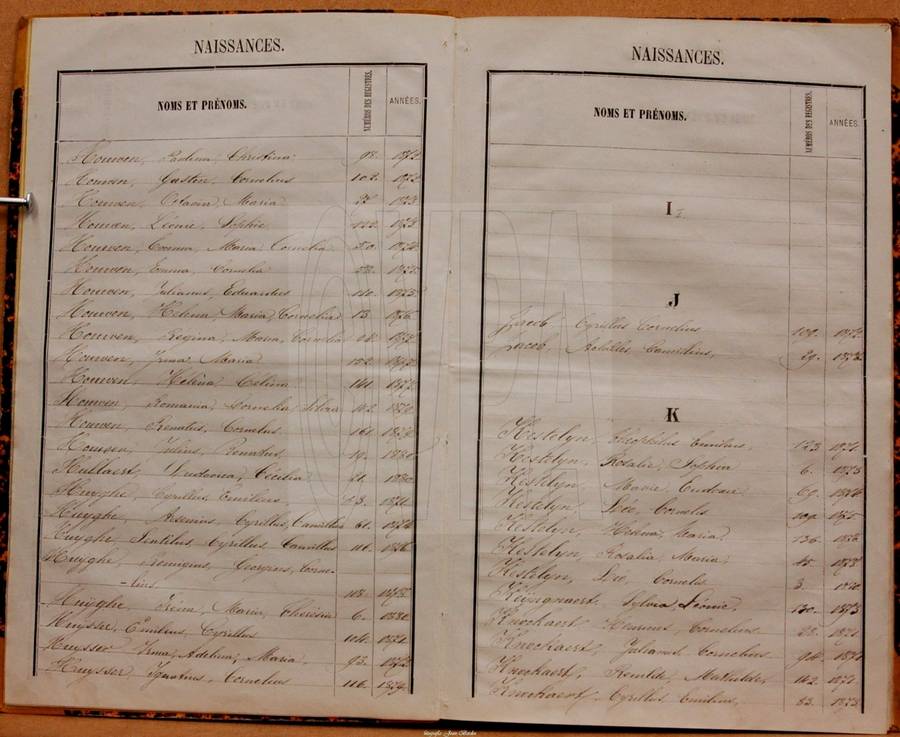 NAISSANCES.
NOMS ET PRÉNOMS.
NUMÉROS DES REGISTRES.
ANNÉES.
Houwen, Paulina, Christina. 98. 1872
Houwen, Gustin, Cornelius 102. 1872
Houwen, Octavia, Maria 1873
Houwen, Léonie, Sophie 1873
Houwen, Emma, Maria, Cornelia 20. 1874
Houwen, Emma, Cornelia 1875
Houwen, Julianus, Eduardus 110. 1875
Houwen, Helena, Maria, Cornelia 13. 1876
Houwen, Regina, Maria, Cornelia
Houwen, Irma, Maria
Houwen, Helèna, Celina 141. 1877
Houwen, Romania, Cornelia, Silvia 142. 1878
Houwen, Renatus, Cornelus 161. 1879
Houwen, Julius, Renatus 19. 1880
Hullaert, Ludovica, Cécilia 21. 1880
Huyghe, Cyrillus, Emilius 1871
Huyghe, Arsenius, Cyrillus, Camillus 61. 1874
Huyghe, Gentilus, Cyrillus, Camillus 111. 1876
Huyghe, Remigius, Georgius, Corne-
-lius 118. 1878
Huyghe, Irèm, Maria, Theresia 6. 1880
Huysser, Emilius, Cyrillus 114. 1871
Huysser, Irma, Adelina, Maria. 93. 1872
Huysser, Ignatius, Cornelius 116. 1879
NAISSANCES.
NOMS ET PRÉNOMS.
NUMÉROS DES REGISTRES.
ANNÉES.
I
J
Jacob Cyrillus Cornelius 109. 1872
Jacob, Achilles Camillius, 29. 1878
K
Kestelyn, Theophilus Emilius, 123 1871
Kestelyn, Rosalie, Sophia 6. 1873
Kestelyn, Marie 69. 1874
Kestelyn, Leo, Cornelis 109. 1875
Kestelyn, Helena, Maria. 136. 1876
Kestelyn, Rosalia, Maria 45. 1878
Kestelyn, Leo, Cornelis 3. 1880
Keyngnaert, Sylvia Léonie. 130. 1873
Knockaert Henricus, Cornelius 22. 1871
Knockaert, Julianus Cornelius 96. 1871
Knockaert, Romilde, Mathilde 142. 1871
Knockaert, Cyrillus, Emilius, 83. 1873